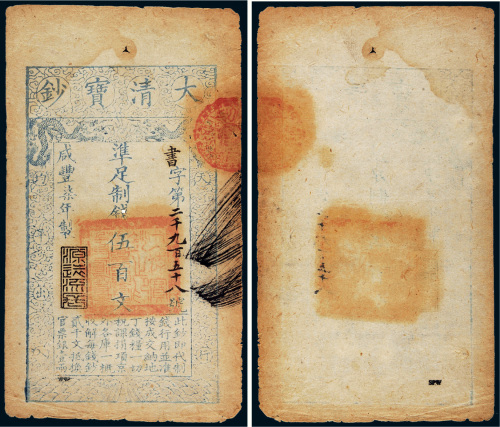 大清寶鈔
書字第二千九百五十八號
準足制錢伍百文
咸豐柒年製
源遠流長
此鈔即代制
錢行用並准
按成交納地
丁錢糧一切
稅課捐項京
外各庫一概
收解每錢鈔
貳千文抵換
官票銀壹兩